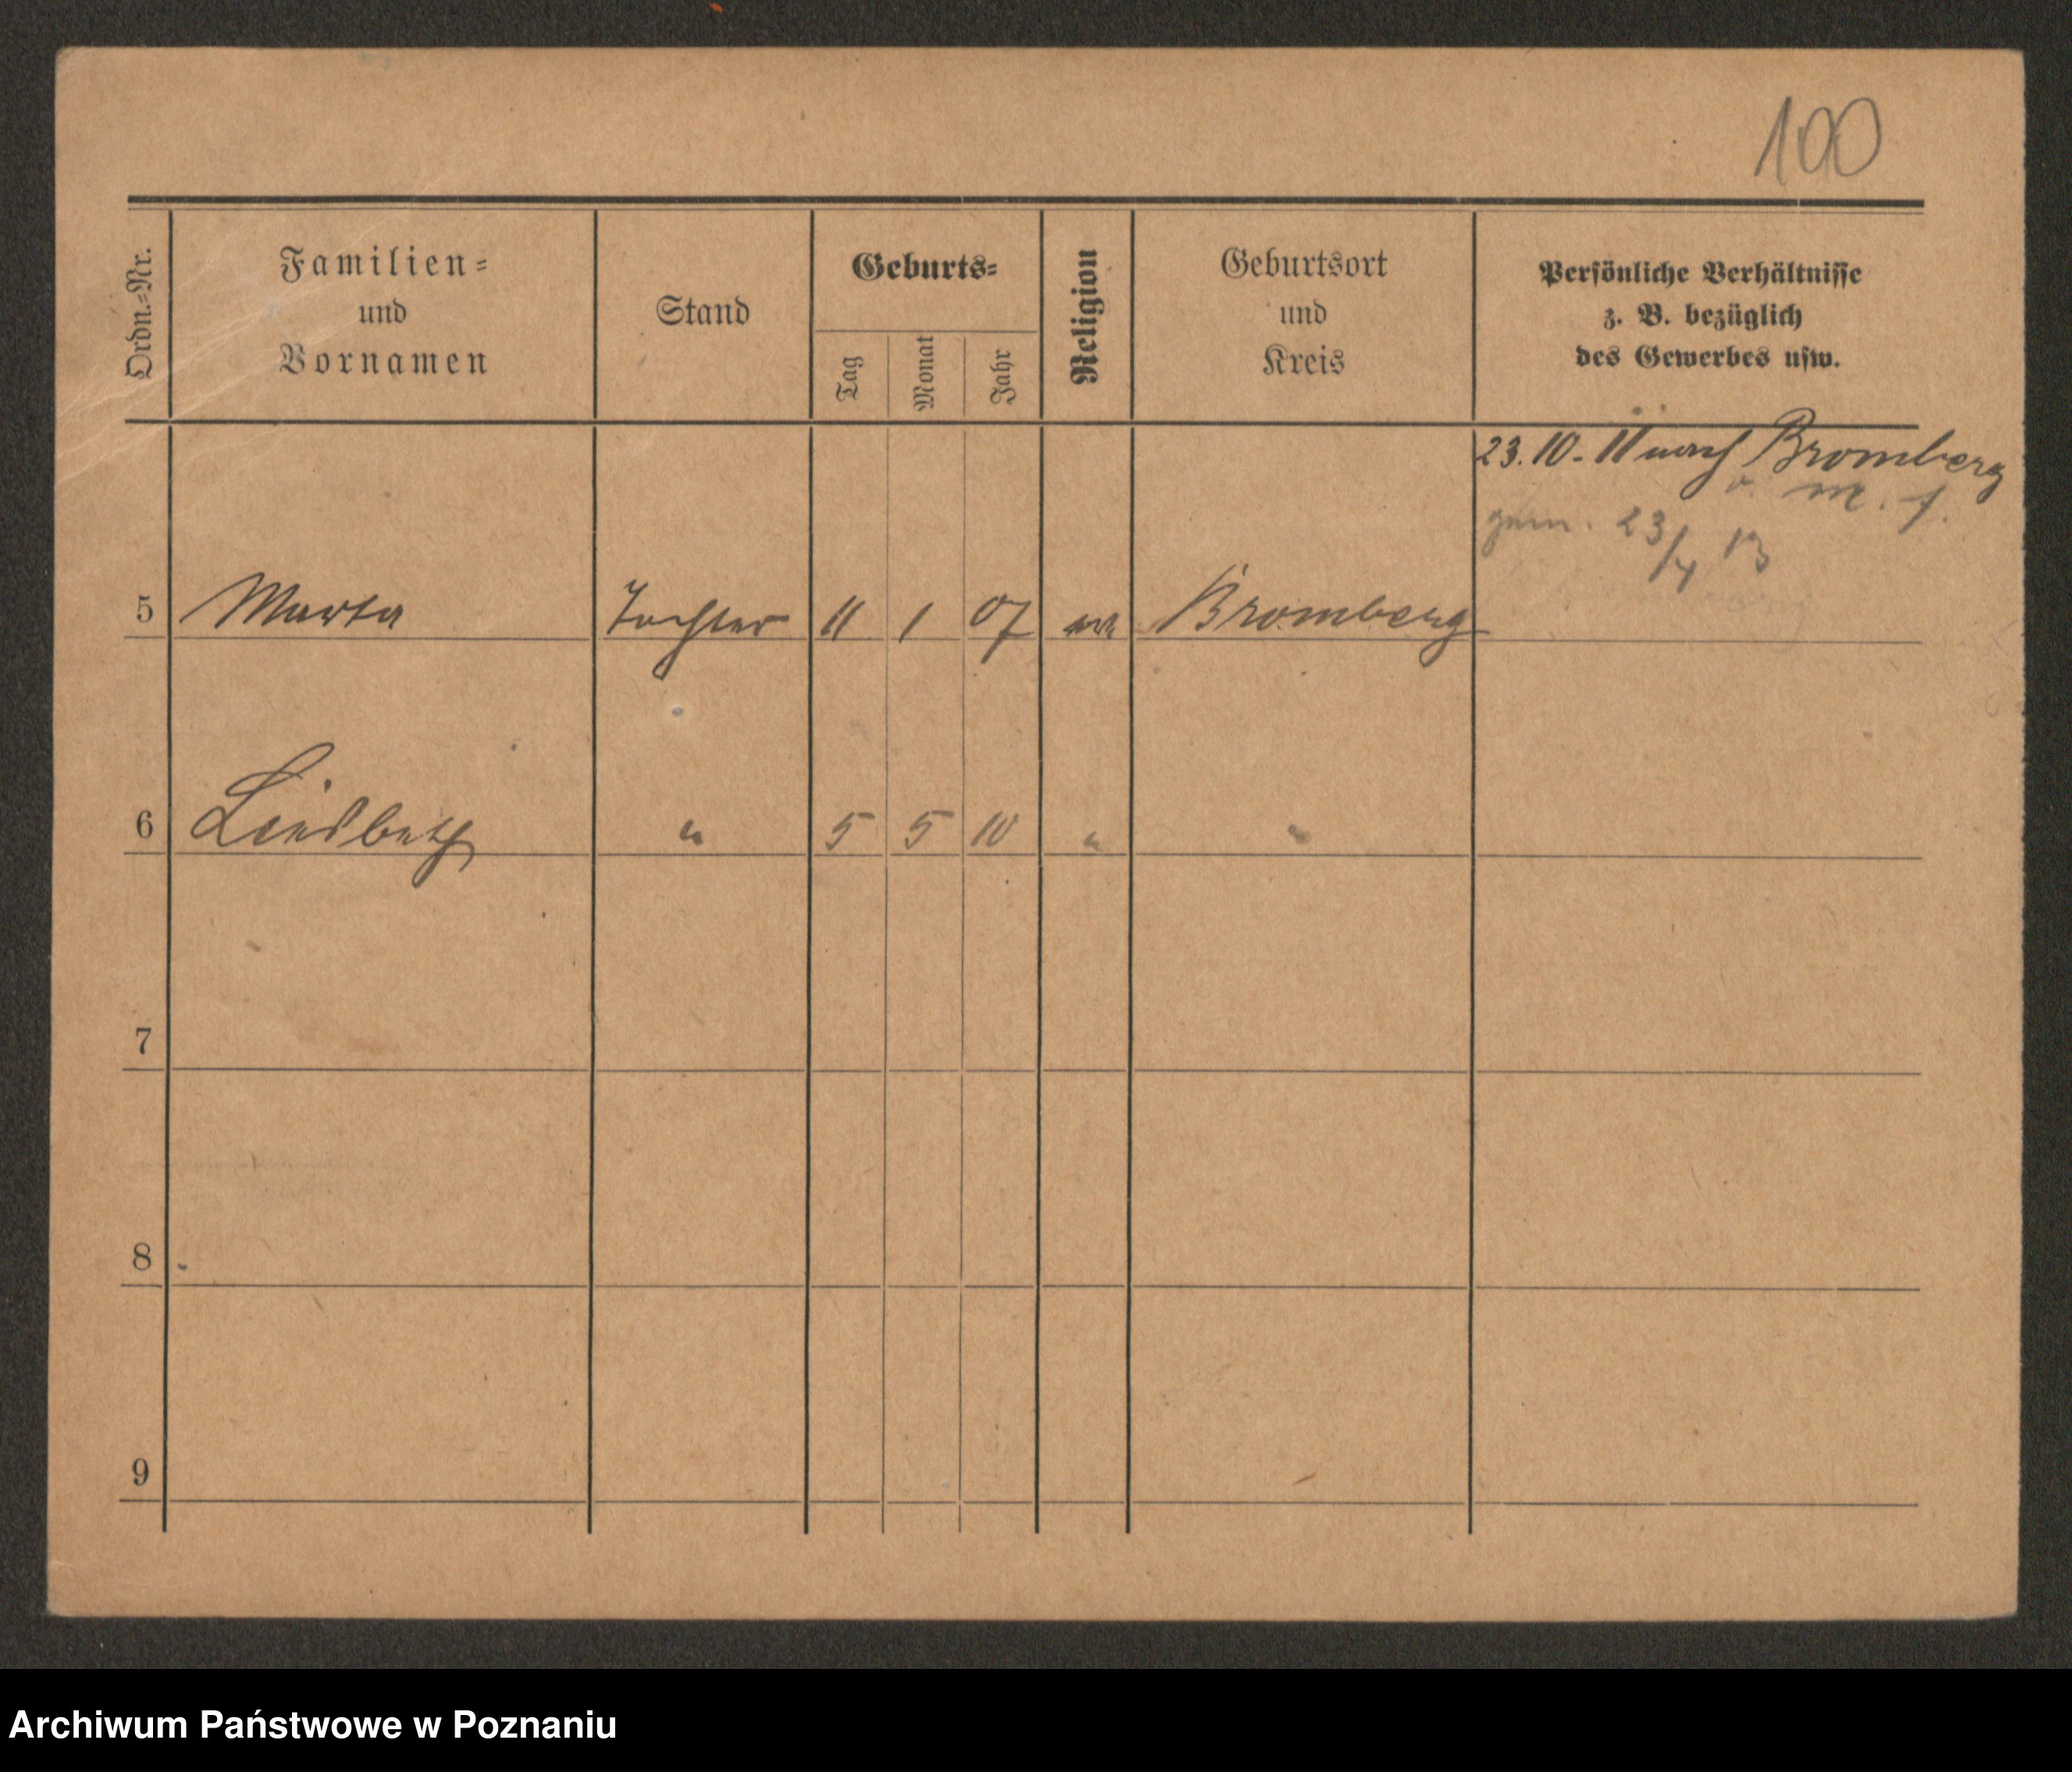 100
Ordn.=Nr.
Familien=
und
Vornamen
Stand
Geburts=
Tag
Monat
Jahr
Religion
Geburtsort
und
Kreis
Persönliche Verhältnisse
z. B. bezüglich
des Gewerbes usw.
23.10.11 nach Bromberg
v. m. f.
23/4 13
5 Marta Tochter 11 1 07 Bromberg
6 " 5 5 10 " "
7
8
9
Archiwum Państwowe w Poznaniu